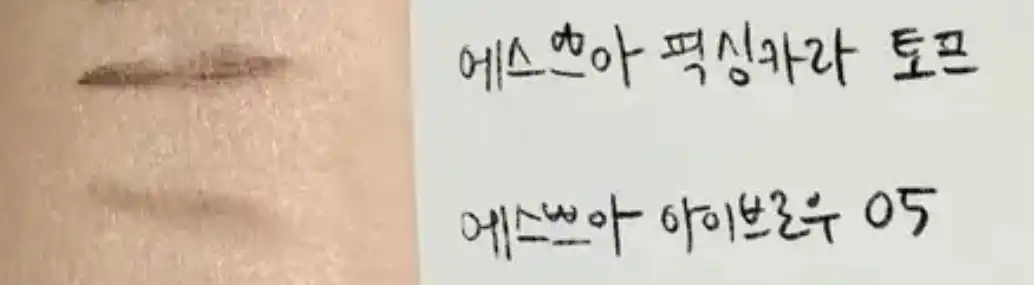 에스쁘아 픽싱카라 토프
에스쁘아 아이브로우 05